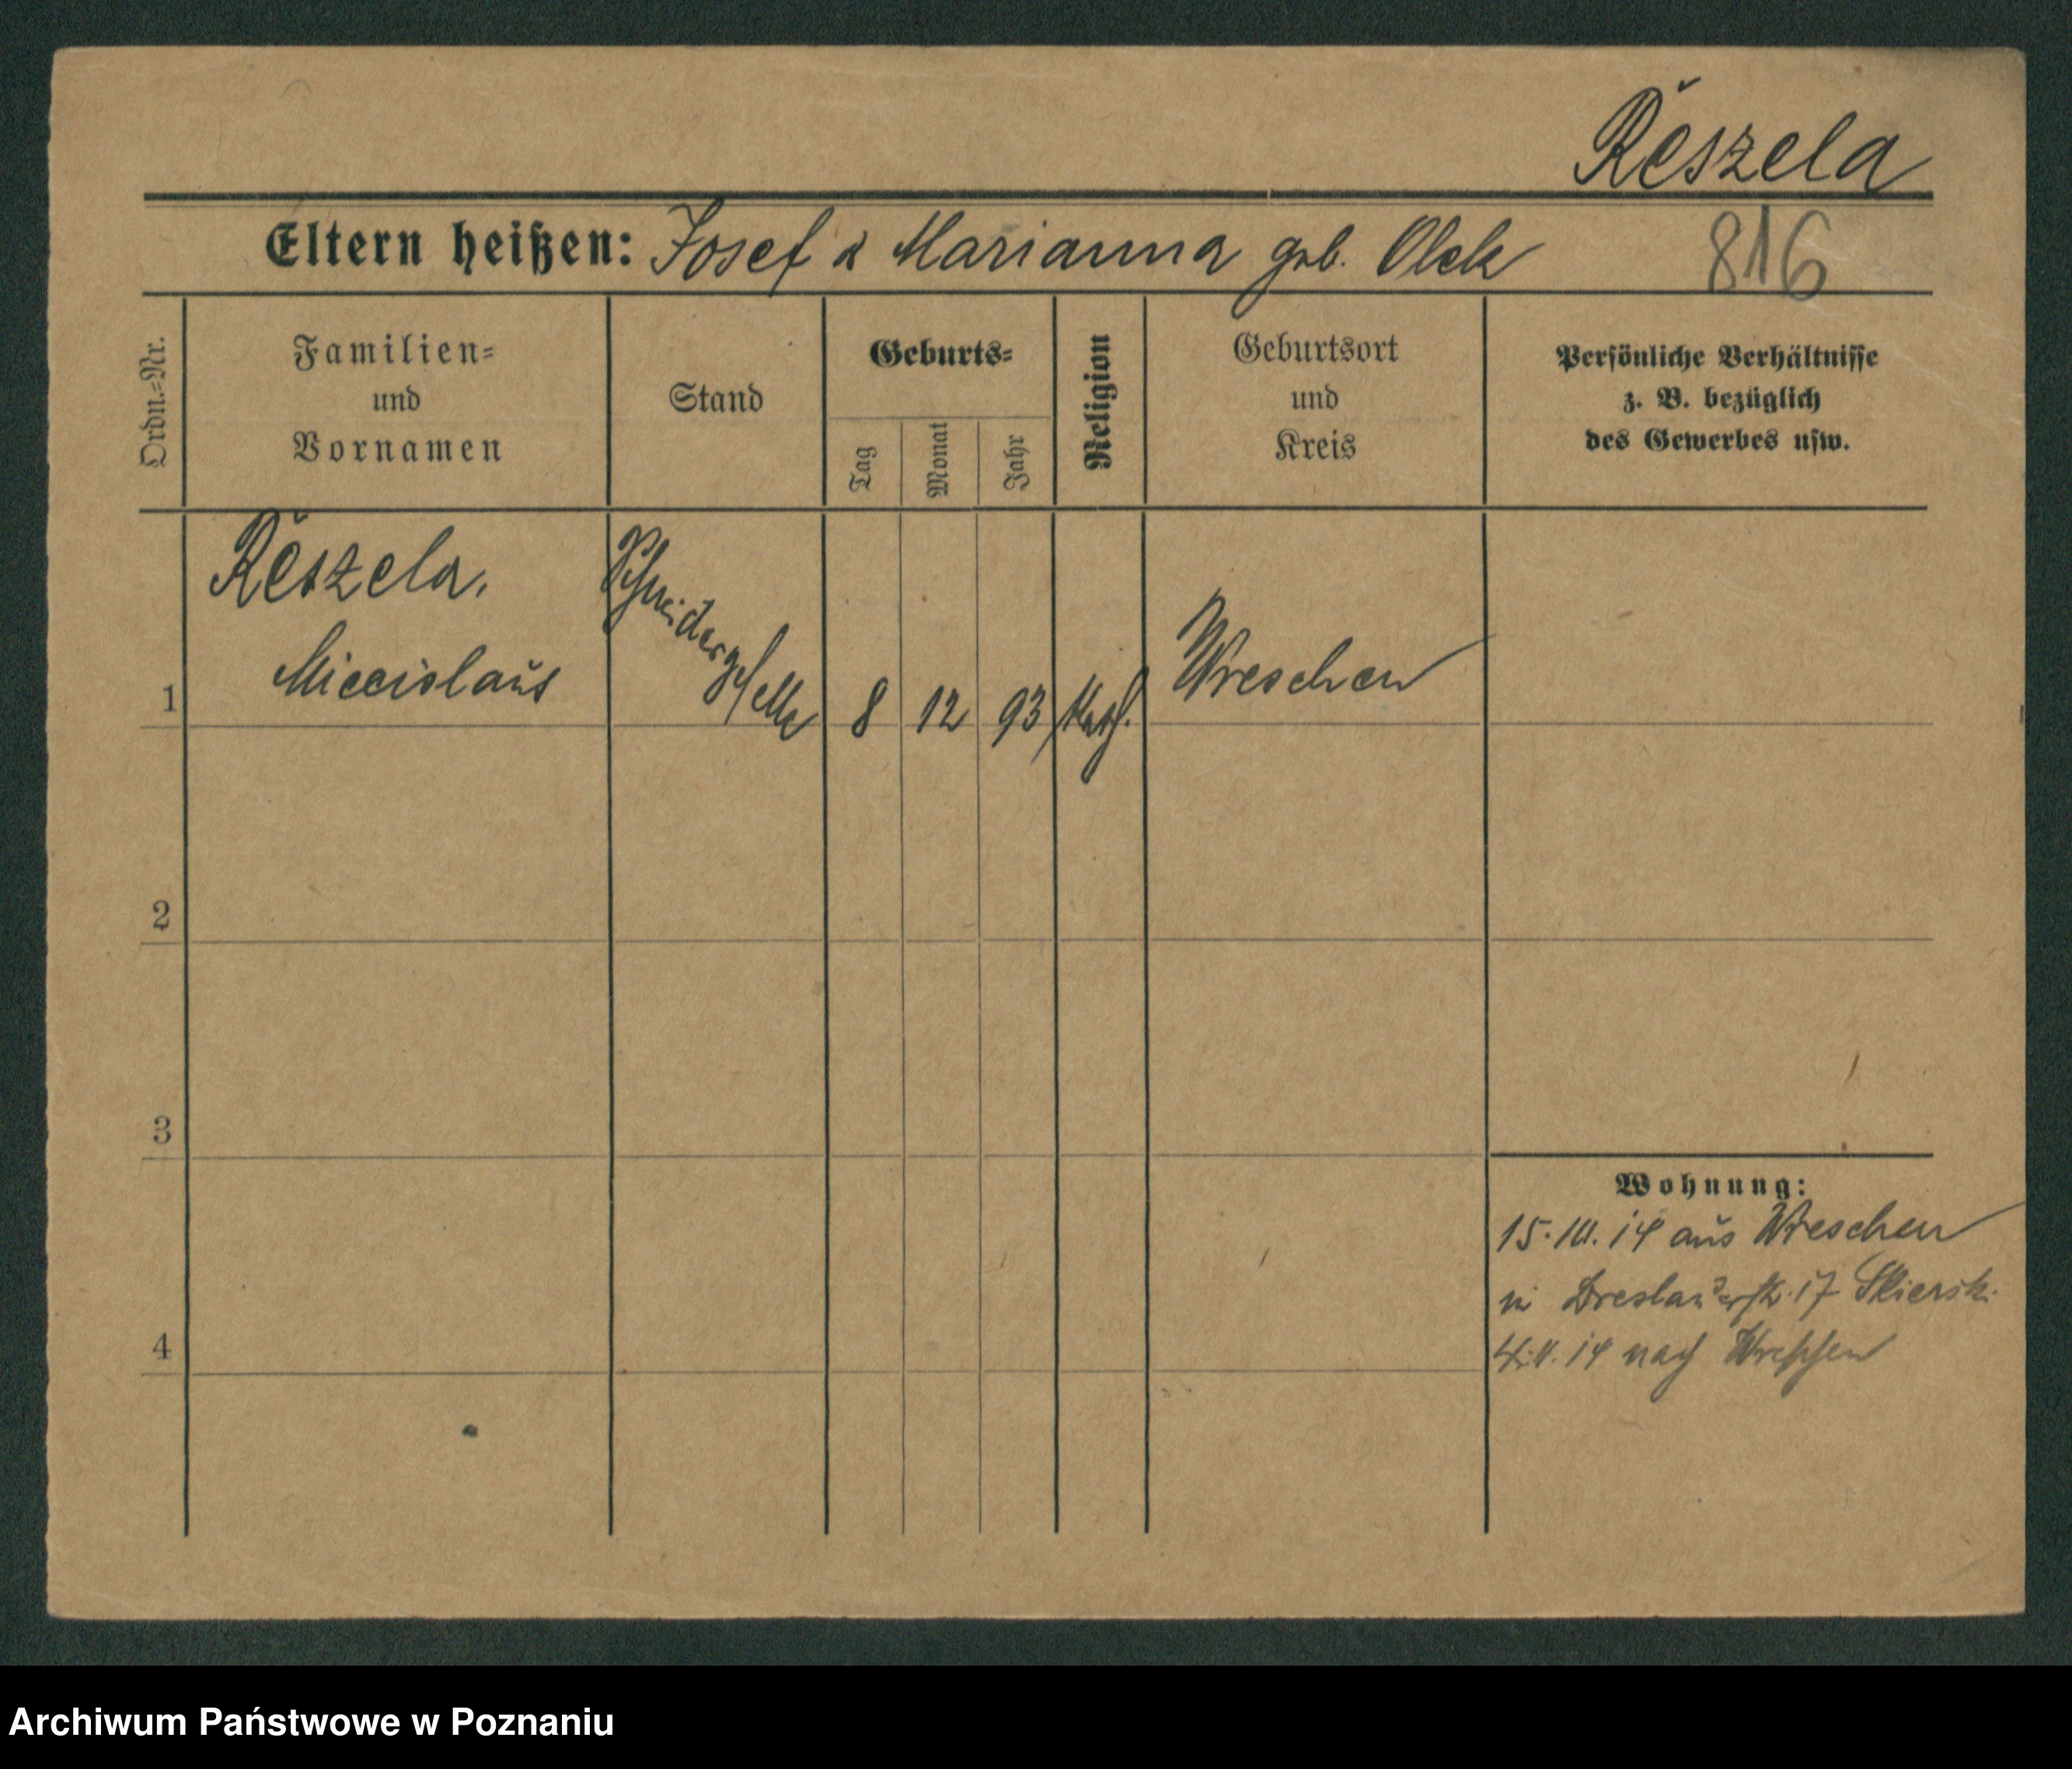 Rešzela
Eltern heißen: Josef & Marianna geb. Olek 816
Ordn.=Nr.
Familien=
und
Vornamen
Stand
Geburts=
Tag
Monat
Jahr
Religion
Geburtsort
und
Kreis
Persönliche Verhältnisse
z. B. bezüglich
des Gewerbes usw.
Rešzela,
Miecislaus
Schneidergeselle
1
8 12 93 Kath.
Wreschen
2
3
4
Wohnung:
15.10.14 aus Wreschen
in Breslauerstr. 17 Skierski
14 nach Wreschen
Archiwum Państwowe w Poznaniu